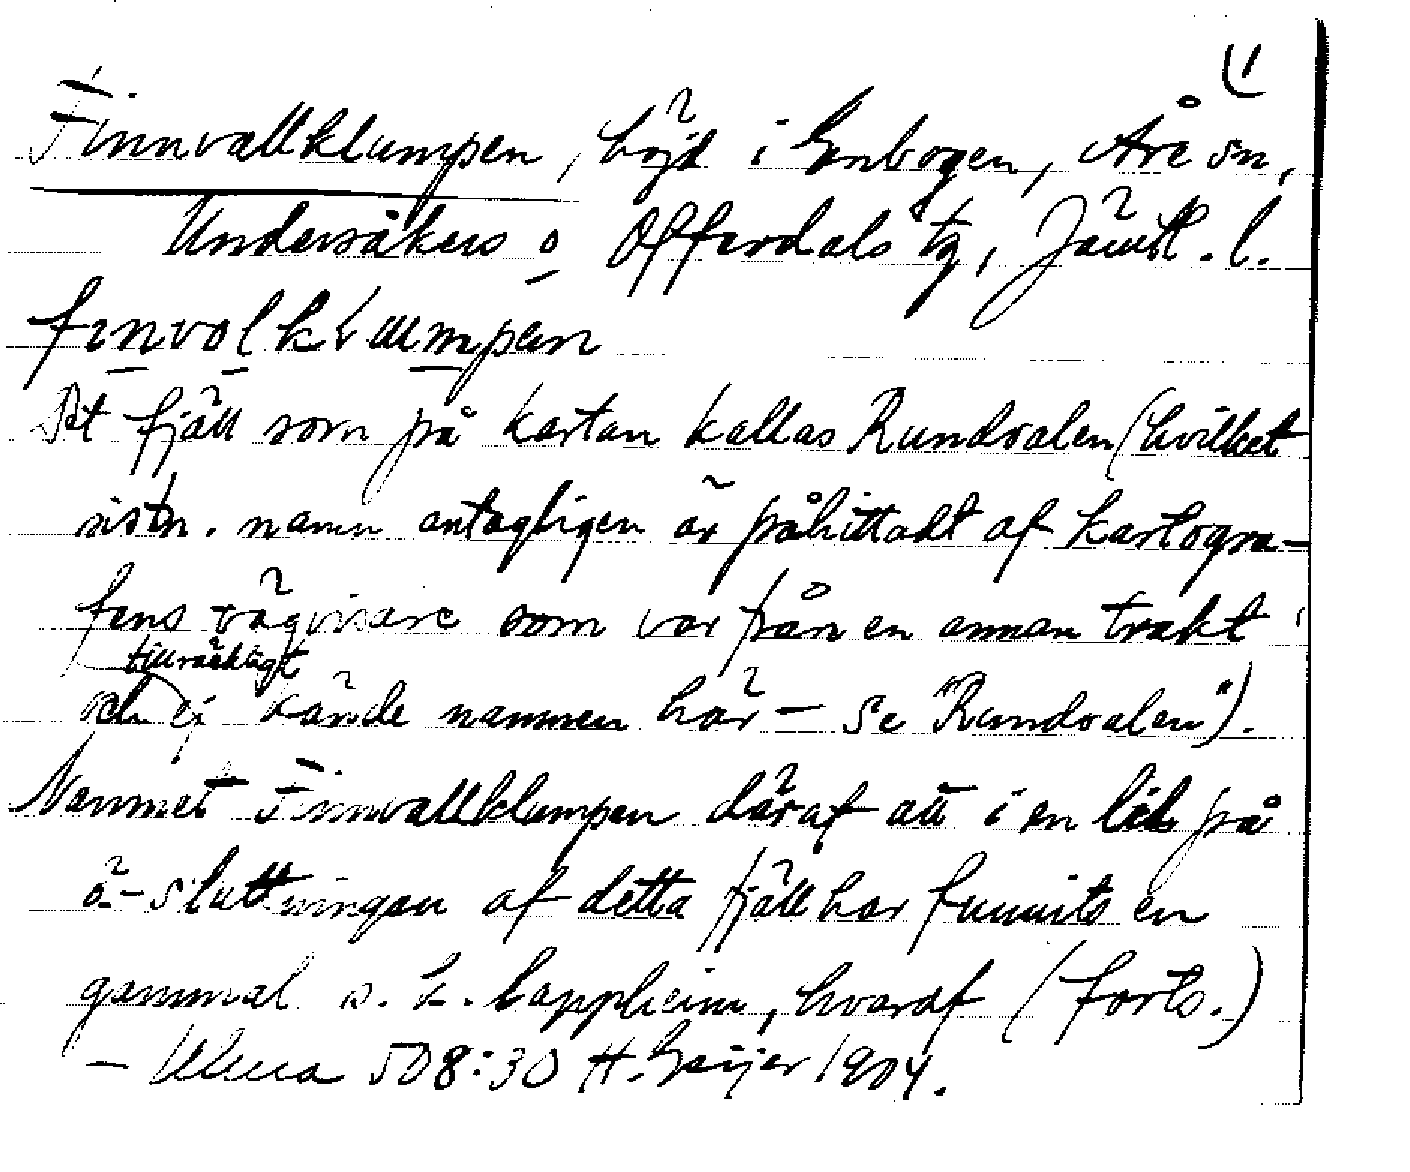 1)
Finnvallklumpen, höjd i Enbogen, Åre sn,
Undersåkers o Offerdals tg, Jämtl. l.
finvolkLuumpen
Det fjäll som på kartan kallas Rundvalen (hvilket
sistn. namn antagligen är påhittadt af kartogra-
fens vägvisare som var från en annan trakt
tillräckligt
och ej kände namnen här – se "Rundvalen").
Namnet Finnvallklumpen däraf att i en lid på
ö-sluttningen af detta fjäll har funnits en
gammal s. k. lappheim, hvaraf (forts.)
– Uluca 508:30 H. Geijer 1904.